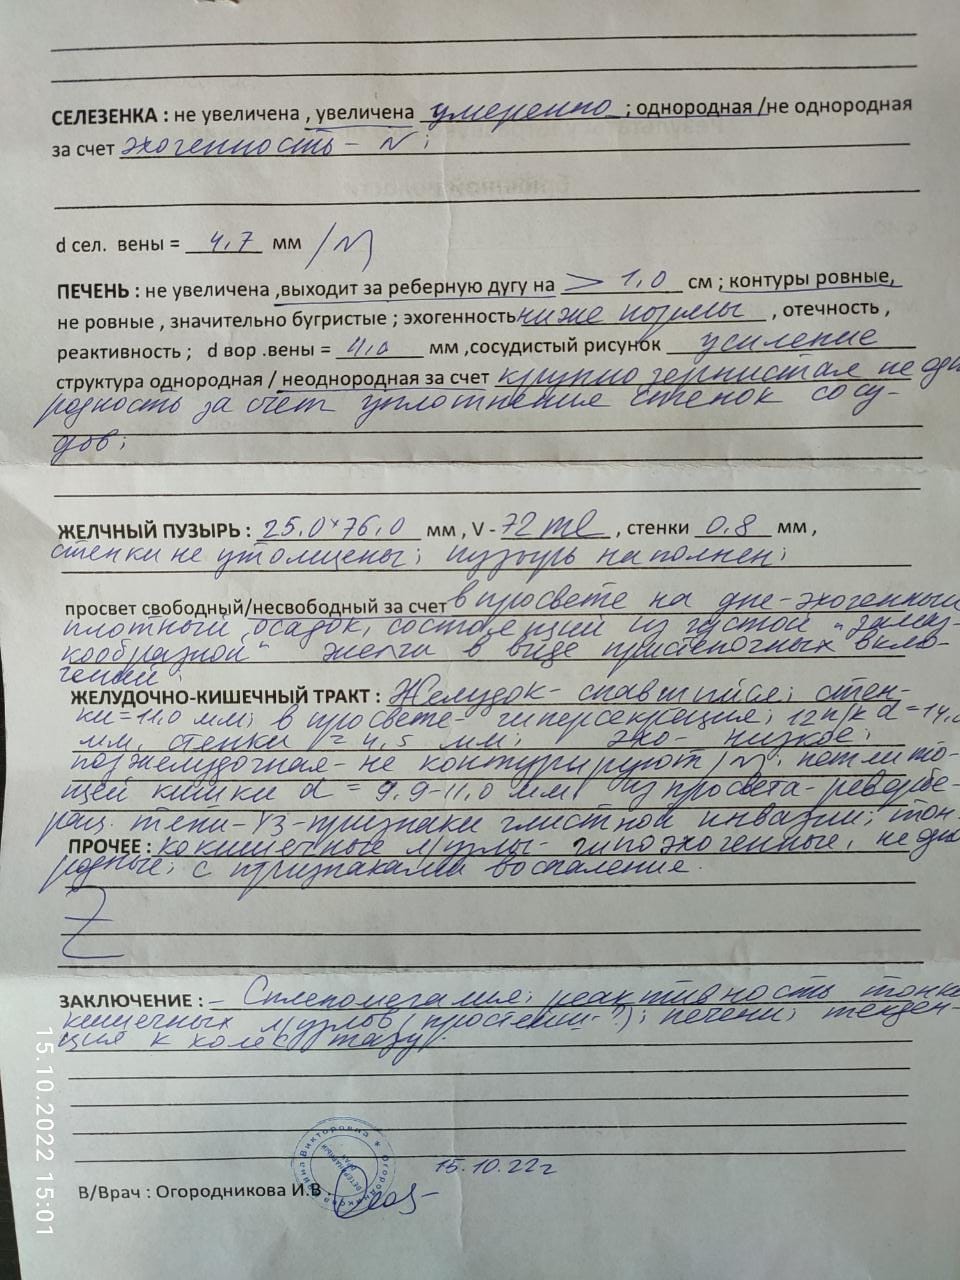 СЕЛЕЗЕНКА : не увеличена , увеличена умеренно ; однородная /не однородная
за счет эхогенность - N ;
d сел. вены = 4,7 мм /N
ПЕЧЕНЬ : не увеличена ,выходит за реберную дугу на > 1,0 см ; контуры ровные,
не ровные , значительно бугристые ; эхогенность ниже нормы , отечность ,
реактивность ; d вор .вены = 4,0 мм ,сосудистый рисунок усиление
структура однородная / неоднородная за счет крупно зернистая не одно
родность за счет уплотнения стенок сосу-
дов;
ЖЕЛЧНЫЙ ПУЗЫРЬ : 25,0×76,0 мм , V - 72 ml , стенки 0,8 мм ,
стенки не утолщены; пузырь наполнен;
просвет свободный/несвободный за счет в просвете на дне-эхогенный
плотный осадок, состоящий из густой "замаз-
кообразной" желчи в виде пристеночных вклю-
чений.
ЖЕЛУДОЧНО-КИШЕЧНЫЙ ТРАКТ : Желудок - спавшийся; стен-
ки = 11,0 мм; в просвете - гиперсекреция; 12п/к d = 14,0
мм, стенки = 4,5 мм; эхо - низкое;
поджелудочная - не контурируют /N; петли то-
щей кишки d = 9,9-11,0 мм; из просвета - ревербе-
рац. тени - УЗ-признаки глистной инвазии; тон-
ПРОЧЕЕ : кокишечные л/узлы - гипоэхогенные, не одно
родные; с признаками воспаления.
Z
ЗАКЛЮЧЕНИЕ : - Спленомегалия; реактивность тонко
кишечных л/узлов (простейш-?); печени; тенден-
ция к холестазу.
В/Врач : Огородникова И.В.
15.10.22г
15.10.2022 15:01